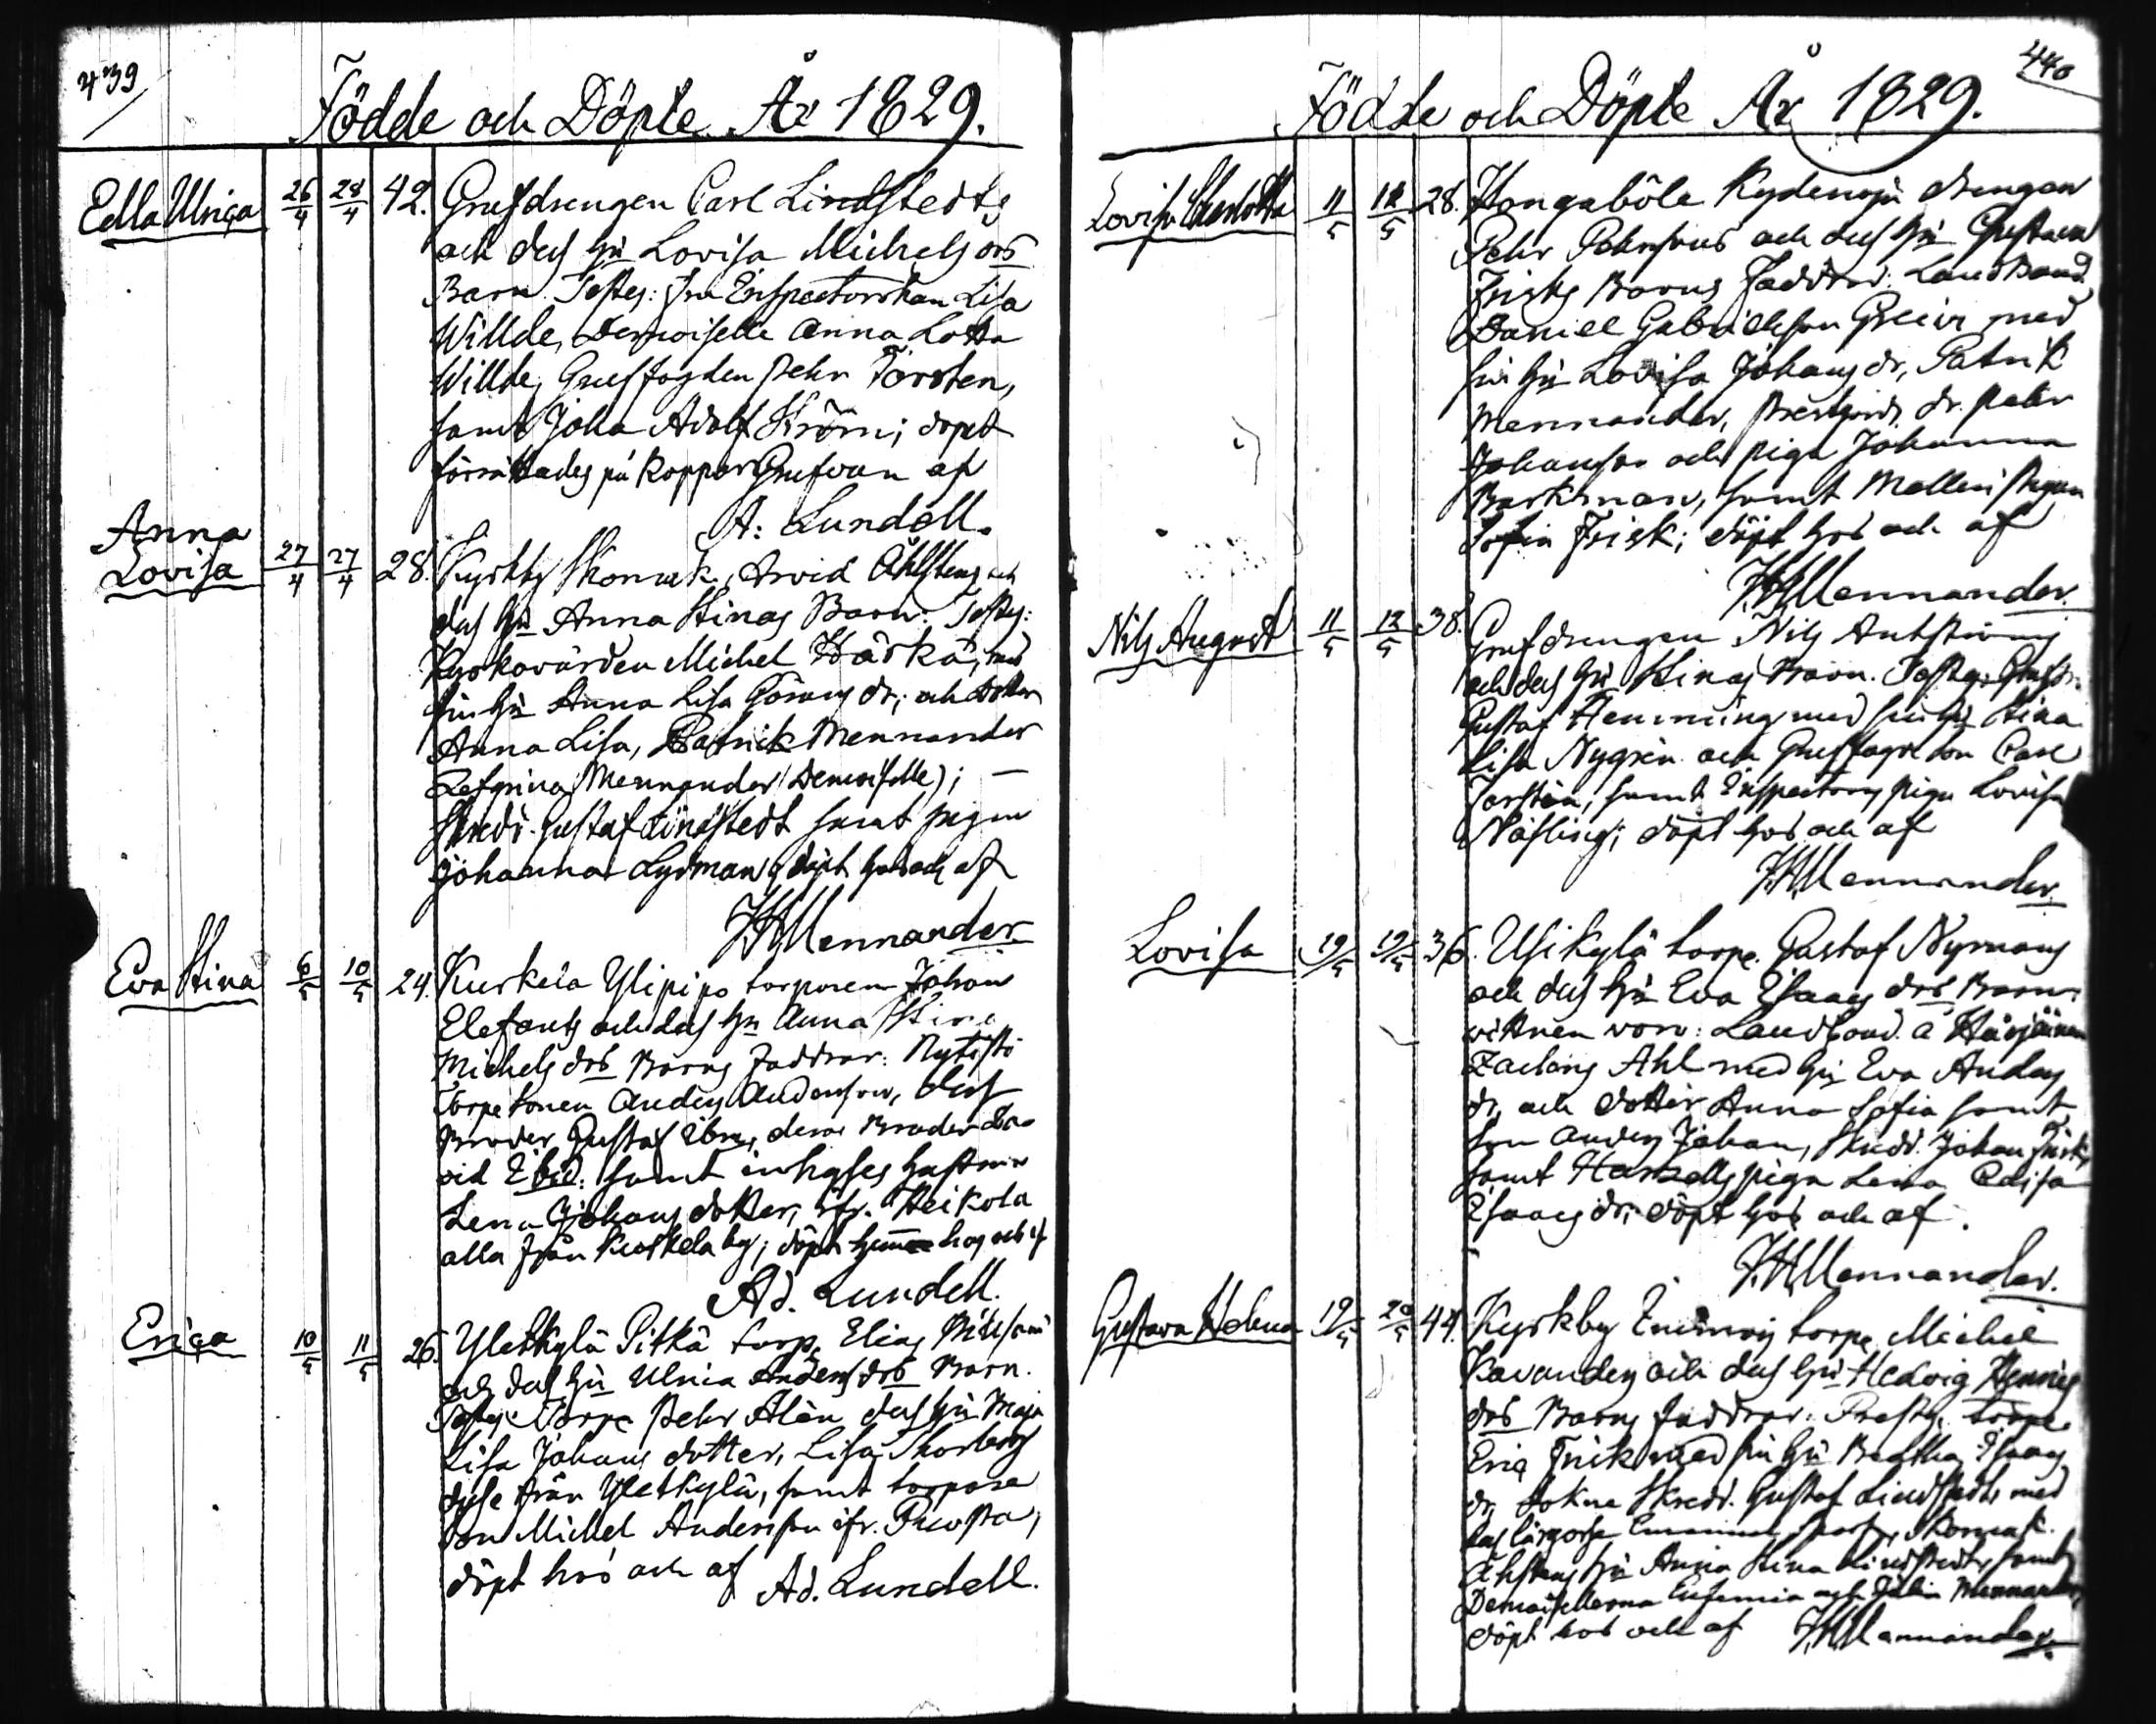 439
Födde och Döpte År 1829.
Edla Ulrica 26/4 28/4 42. Grufdrengen Carl Lindstedts
och dess hu Lovisa Michelsdrs
Barn. Testes: Fru Enspectorskan Lisa
Willde, Demoiselle Anna Lotta
Willde, Gruffogden Pehr Torsten,
samt Joha Adolf Ström; dopet
förrättades på Koppar Grufwan af
A: Lundell.
Anna
Lovisa 27/4 27/4 28. Kyrkby Skomak. Arvid Åhlstens och
dess hu Anna Stinas Barn: Testes:
Kyrkovärden Michel Härkä, med
sin hu Anna Lisa Görans dr; och dotter
Anna Lisa, Patrick Mennander
Mennander (Demoiselle); —
Skredd. Gustaf Lindstedt samt pigan
Johanna Lydman döpt hos och af
Mennander
Eva Stina 6/5 10/5 24. Kurkela Ylipipo torparen Johan
Elefants och dess hu Anna Stina
Michels drs Barns Faddrar:
Torpe sonen Anders Anderson, dess
Broder Gustaf ibm, dens Broder Da-
vid Ebid: samt inhyses hustrun
Lena Johans dotter, ifr. Heikola
alla från Kurkela by; döpt hos och af
Ad. Lundell.
Erica 10/5 11/5 26. Yletkylä Pitkä torp. Elias
och dess hu Ulrica Anders drs Barn.
Testes: Torpe Pehr Alén dess hu Maja
Lisa Johans dotter, Lisa
desse från Yletkylä, samt torpare
son Michel Andersson ifr.
döpt hos och af Ad. Lundell.
440
Födde och Döpte År 1829.
Lovisa Charlotta 11/5 12/5 28. Kongaböle Kydenoja drengen
Pehr Pehrsons och dess hu Gustava
Frisks Barns Faddrar: Landbond.
Daniel Gabrielsson Greivi med
sin hu Lovisa Johans dr, Patrik
Mennander, Prestgårds dr. Petter
Johansson och piga Johanna
Barkman, samt pigan
Sofia Frisk; döpt hos och af
Mennander.
Nils August 11/5 12/5 38. Grufdrengen Nils
och dess hu Stinas Barn. Testes: Grufdr.
Gustaf Flemming med sin hu Stina
Lisa Nygrén och Gruffogde son Carl
Torstén, samt Enspectors piga Lovisa
Näsling; döpt hos och af
Mennander.
Lovisa 19/5 19/5 36. Usikylä torpe. Gustaf Nymans
och dess hu Eva Esaacs drs Barn.
vittnen voro: Landbond. å
Zachris Ahl med hu Eva Anders
dr, och dotter Anna Sofia samt
son Anders Johan, Skredd. Johan Frisk,
samt piga Lena Caisa
Esaacs dr; döpt hos och af.
Mennander.
Gustava Helena 19/5 20/5 44. Kyrkby torpe. Michel
Kavanders och dess hu Hedvig Hennics
drs Barns faddrar: Prestg. torpe.
Eric Frisk med sin hu Beatha Esaacs
dr, Sokne Skredd. Gustaf Lindstedt med
Emanuel Skomak.
Åhlstens hu Anna Stina Lindstedt, samt
Demoisellerna Eufemia och Julia Mennander,
döpt hos och af Mennander.